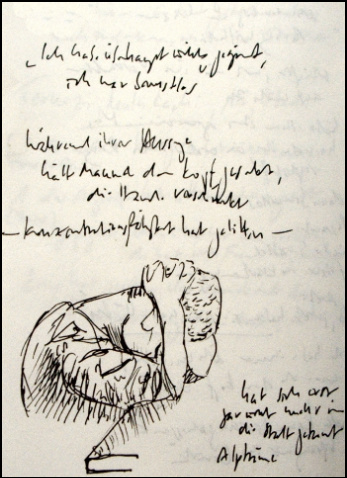 „Ich habe überhaupt nichts
ich war bewusstlos
während ihrer Aussage
hält den Kopf gesenkt,
die Hände verschränkt
– Konzentrationsfähigkeit hat gelitten –
hat sich erst
gar nicht mehr in
die Stadt getraut
Alpträume